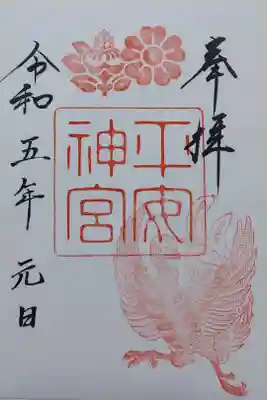 奉拝
平安
神宮
令和五年 元日